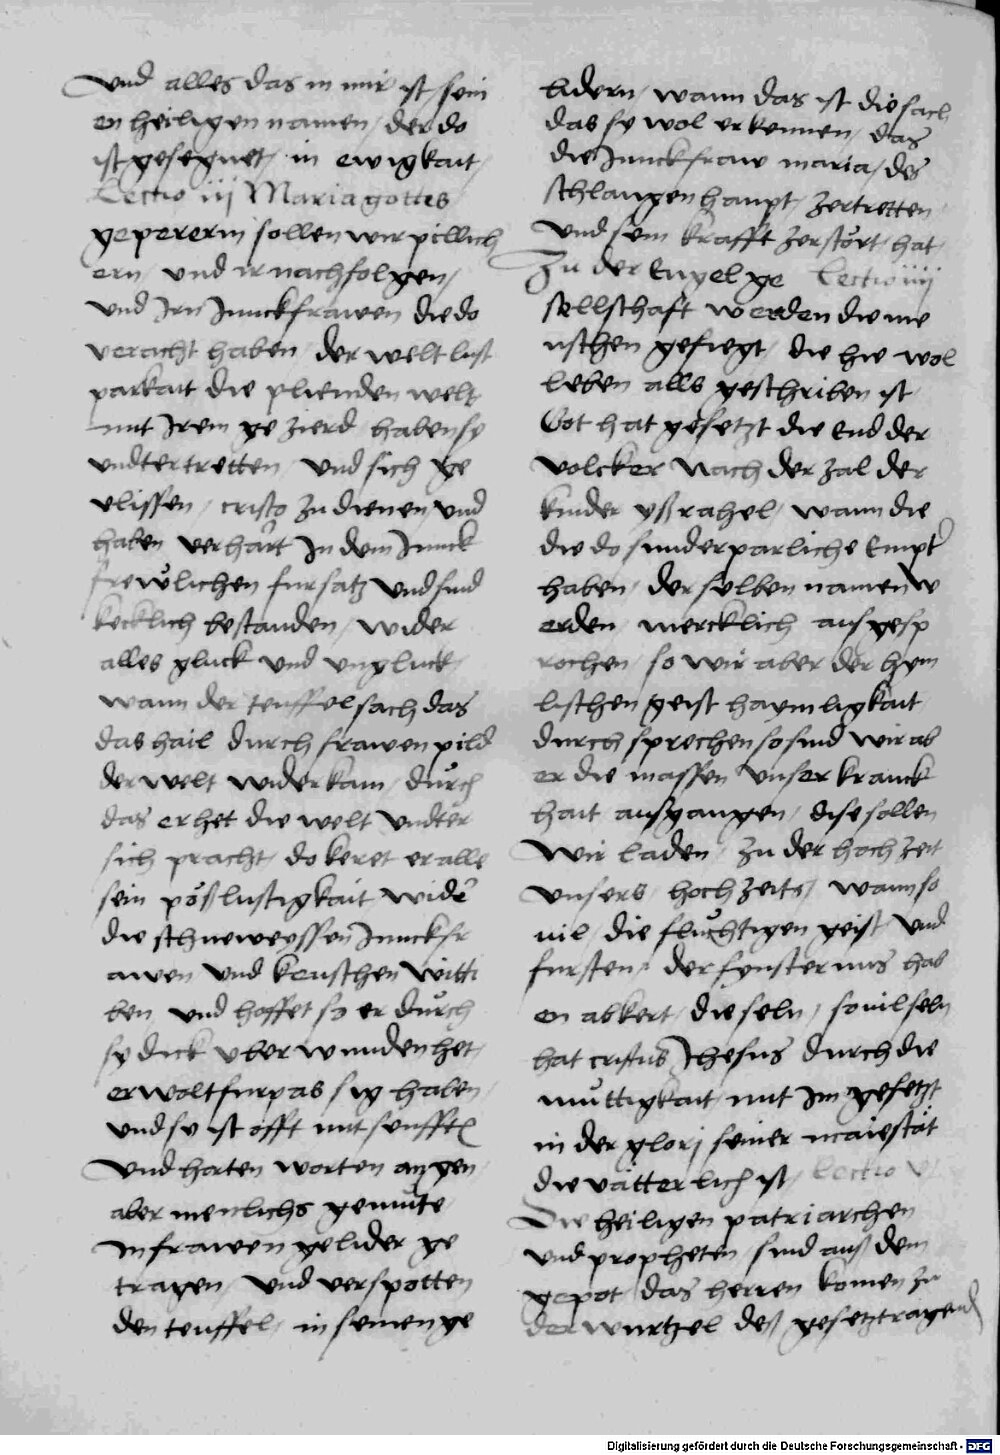 Und alles das in mir ist / sein
en heiligen namen / der do
ist gesegnet / in ewigkait /
Lectio iij Maria gottes
gepererin sollen wir pillich
ern / und ir nachfolgen /
und Irn Junckfrawen die do
veracht haben / der welt lust
parkait die plienden welt
mit Irem ge zierd / haben sy
undtertretten / und sich ge
vlissen / cristo zu dienen / und
haben verhart In dem Junck
frewlichen fursatz und sind
kecklich bestanden / wider
alles gluck und ungluck /
wann der teuffel sach das
das hail durch frawen pild
der welt widerkam / durch
das er het die welt undter
sich pracht / do keret er alle
sein pöß lustigkait / wider
die schneweyssen Junckfr
awen und keuschen witti
ben / und hoffet so er durch
sy dick uberwunden het /
er wolt furpas sig haben /
und sy ist offt mit senfften
und horten worten an gen
aber menlichs gemute /
In frawen gelider ge
tragen / und verspotten
den teuffel / in seinen ge
lidern / wann das ist die sach
das sy wol erkennen / das
die Junckfraw maria / des
schlangen haupt / zertretten
und sein krafft zerstört / hat /
Zu der Engel ge Lectio iiij
sellschaft werden die me
nschen gefiegt / die hie wol
leben alls geschriben ist
Got hat gesetzt die end der
volcker nach der zal der
kinder yßrahel / wann die
die do sunderparliche Empter
haben / der selben namen w
erden / mercklich aus gesp
rochen / so wir aber der hym
lischen geist haymligkait /
durch sprechen so sind wir ab
er die massen unser kranck
hait außgangen / dise sollen
wir laden / zu der hochzeit
unsers / hochzeits / wann so
vil / die fluchtigen geist / und
fursten / der fynsternus hab
en abkert / die seln / so vil seln
hat cristus Jhesus durch die
muttigkait / mit Im gesetzt
in der glori seiner maiestat
die vätterlich ist / Lectio v
Die heiligen patriarchen
und propheten / sind auß dem
gepot / das herren komen zu
der wurtzel deß gesetztragend
Digitalisierung gefördert durch die Deutsche Forschungsgemeinschaft - DFG